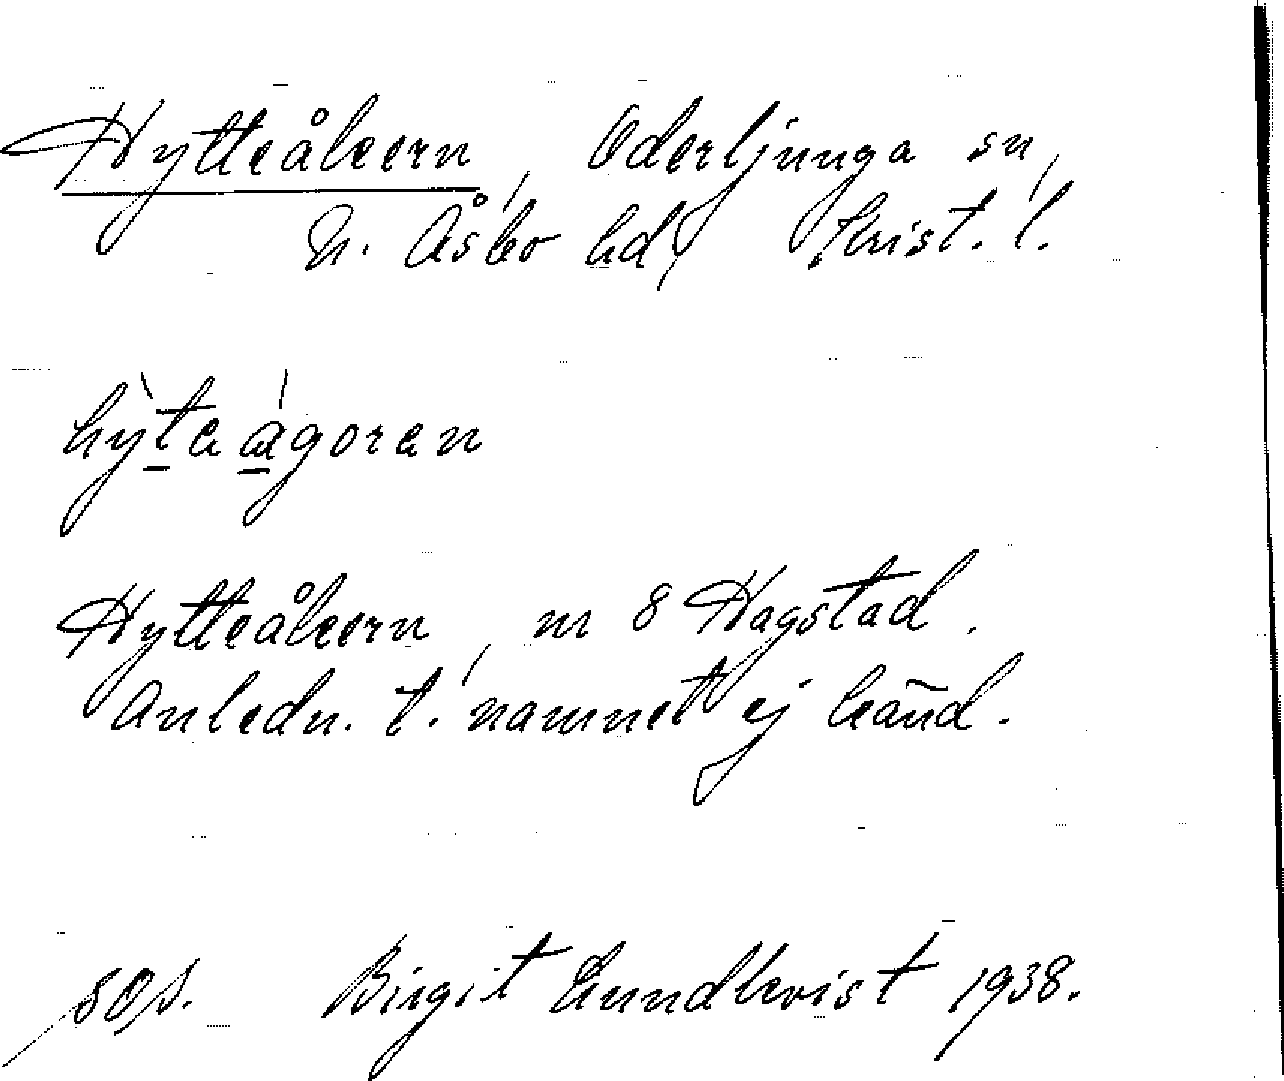 Hytteåkern, Oderljunga sn,
N. Åsbo hd, Krist. l.
hỳtaágoran
Hytteåkern, nr 8 Hagstad.
Anledn. t. namnet ej känd.
Birgit Lundkvist 1938.